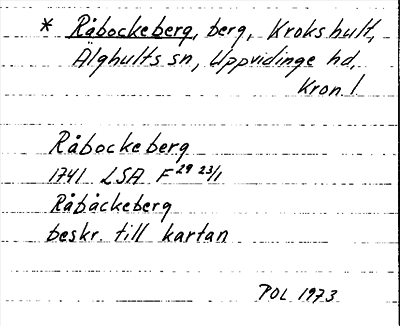 * Råbockeberg, berg, Krokshult,
Älghults sn, Uppvidinge hd,
Kron. l
Råbockeberg
1741 LSA F 29 23/1
Råbåckeberg
beskr. till kartan
POL 1973